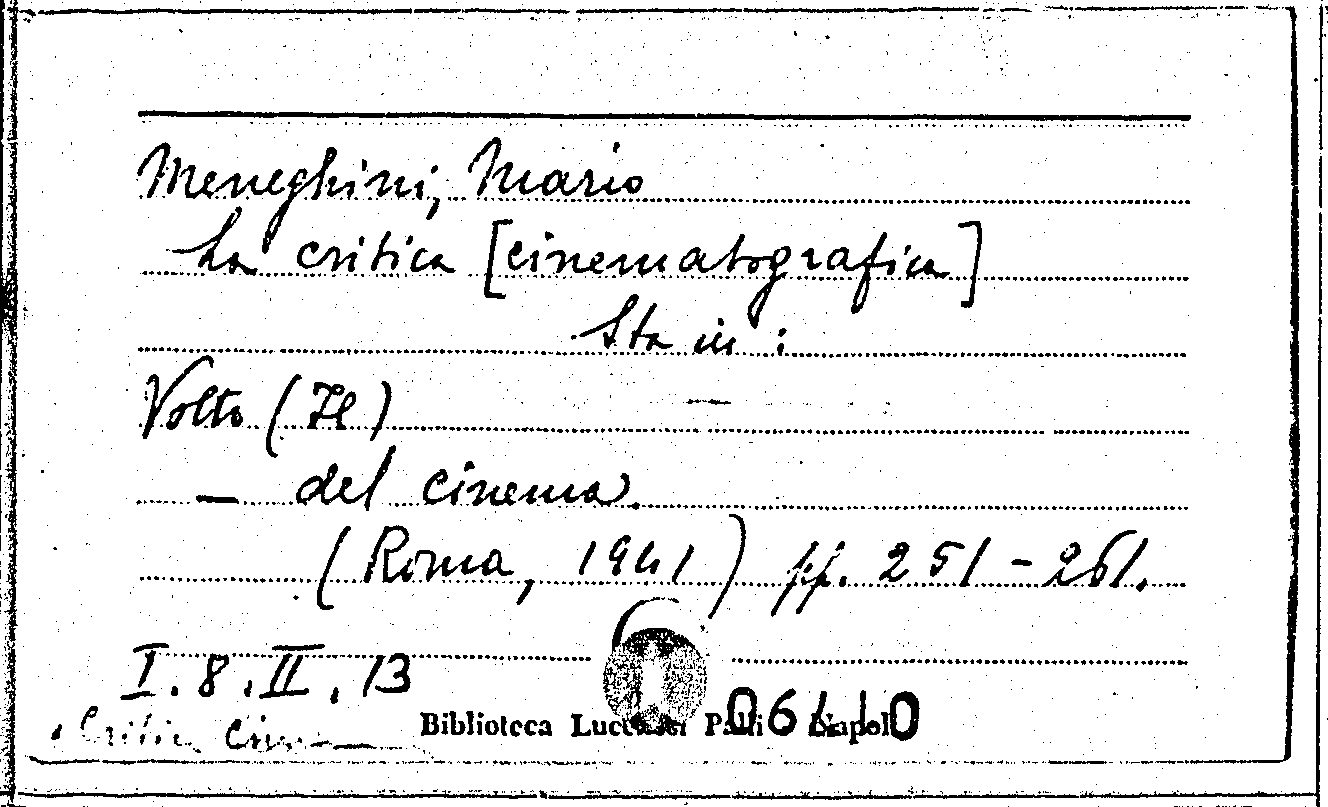 Meneghini, Mario
La critica [cinematografica]
Sta in:
Volto (Il)
— del cinema.
(Roma, 1941) pp. 251-261.
I. 8. II. 13
Biblioteca Lucchesi Palli Napoli